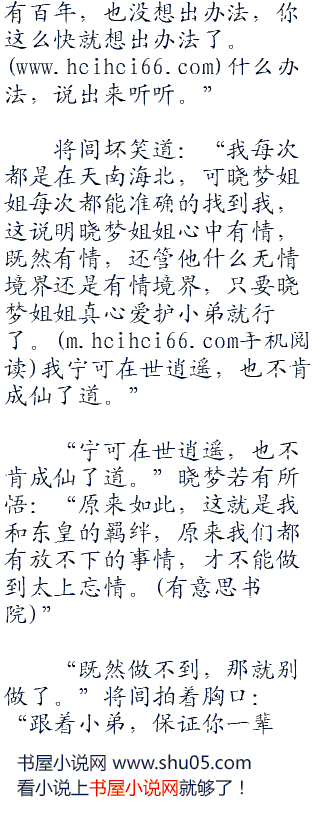 有百年，也没想出办法，你
这么快就想出办法了。
(www.hcihci66.com)什么办
法，说出来听听。”
将闾坏笑道：“我每次
都是在天南海北，可晓梦姐
姐每次都能准确的找到我，
这说明晓梦姐姐心中有情，
既然有情，还管他什么无情
境界还是有情境界，只要晓
梦姐姐真心爱护小弟就行
了。(m.hcihci66.com手机阅
读)我宁可在世逍遥，也不肯
成仙了道。”
“宁可在世逍遥，也不
肯成仙了道。”晓梦若有所
悟：“原来如此，这就是我
和东皇的羁绊，原来我们都
有放不下的事情，才不能做
到太上忘情。(有意思书
院)”
“既然做不到，那就别
做了。”将闾拍着胸口：
“跟着小弟，保证你一辈
书屋小说网 www.shu05.com
看小说上书屋小说网就够了！